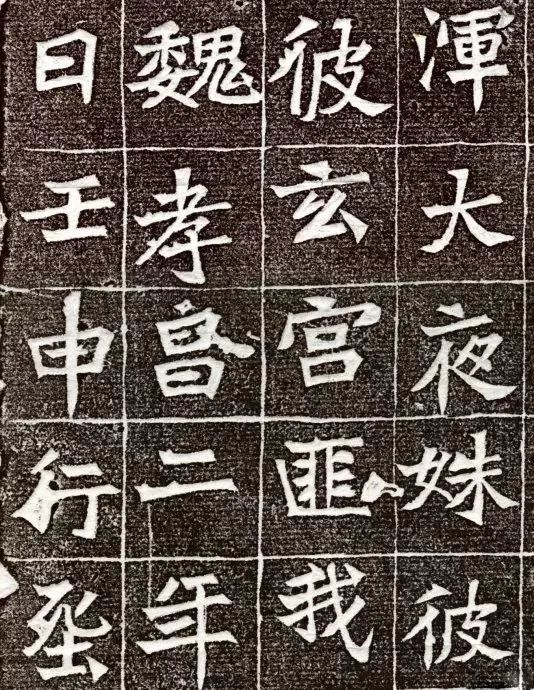 渾大夜姝彼
彼玄宫匪我
魏孝昌二年
日壬申行